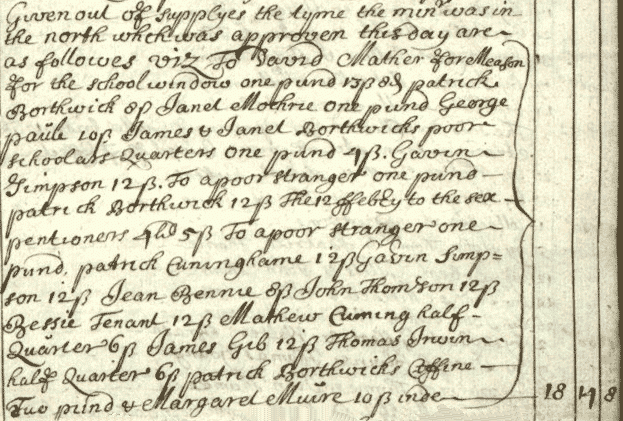 Given out of supplyes the tyme the minr was in
the north which was approven this day are
as followes viz To David Mather for Meason
for the school window one pund 13ß 8d patrick
Borthwick 8ß Janet Mothrie one pund George
paull 10ß James & Janet Borthwicks poor
schoolars Quarters one pund 4ß. Gavin
Simpson 12ß. To a poor stranger one pund
patrick Borthwick 12ß The 12 ffebry to the sex
pentioners 4lid 5ß To a poor stranger one
pund, patrick Cuninghame 12ß Gavin Simp=
son 12ß Jean Bennie 8ß John Thomson 12ß
Bessie Tenant 12ß Mathew Cuming half
Quarter 6ß James Gib 12ß Thomas Irwin
half Quarter 6ß patrick Borthwicks Coffine
Two pund & Margaret Muire 10ß inde 18 14 8